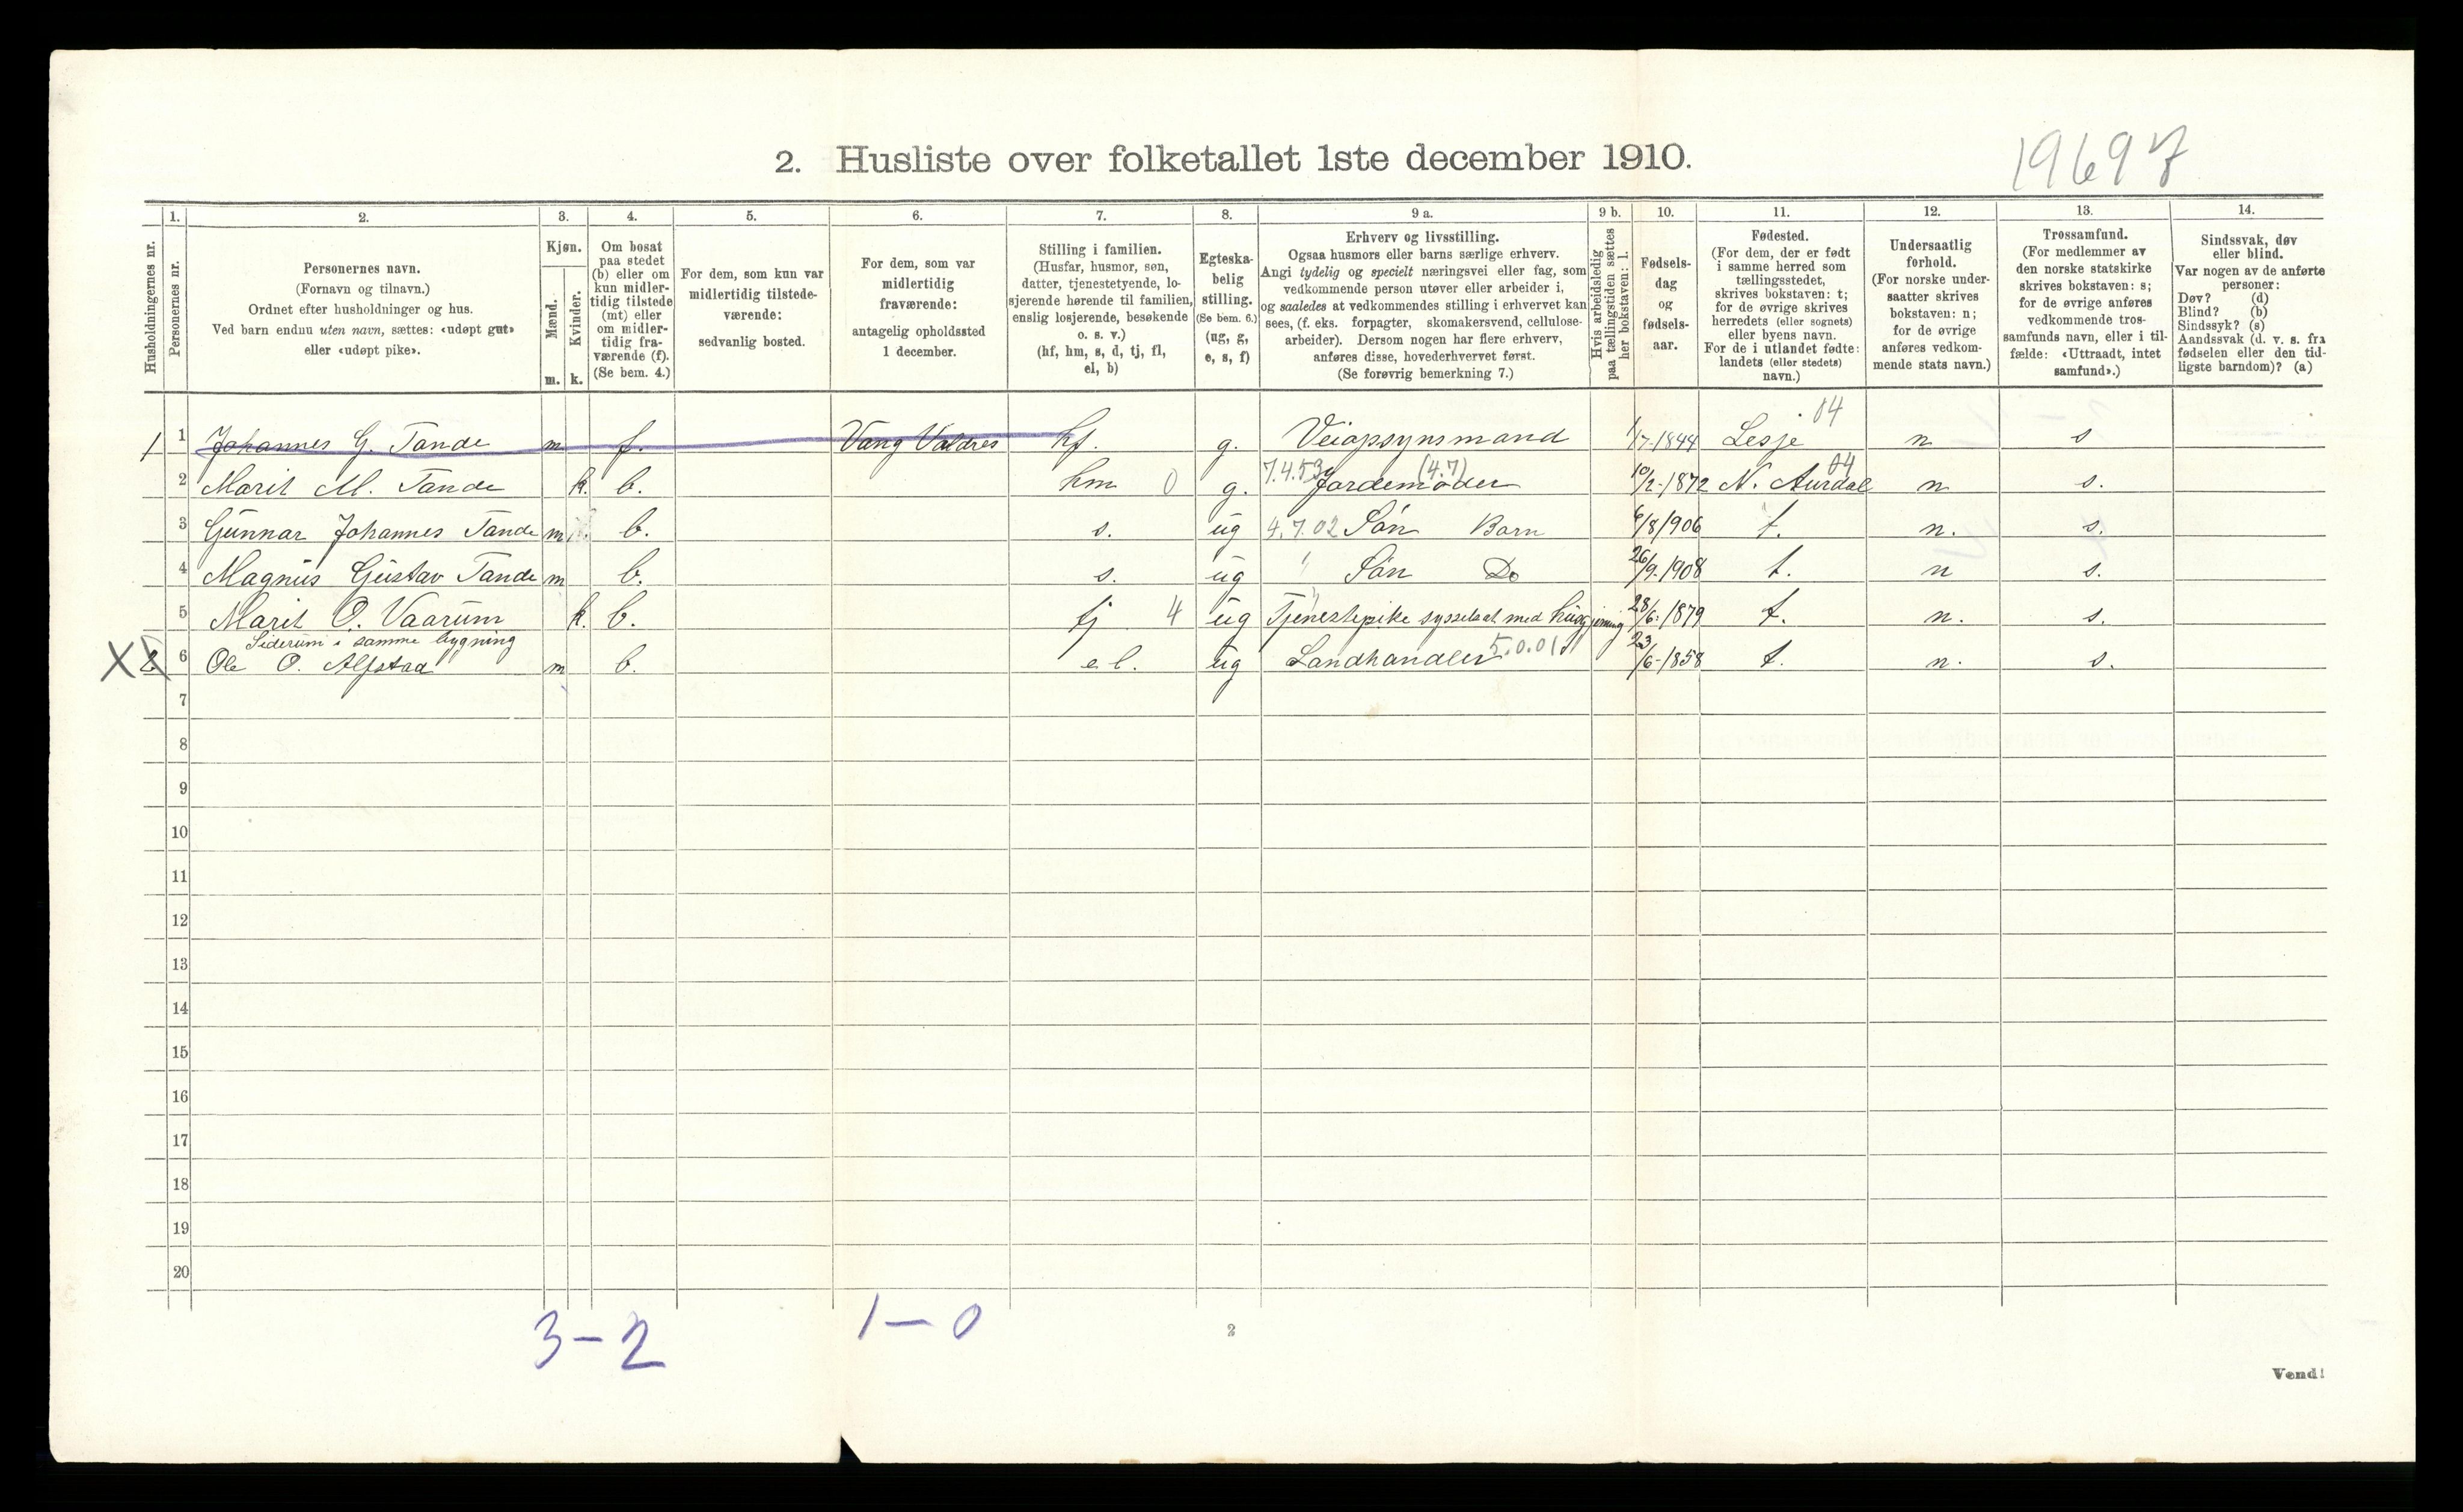 19697
2. Husliste over folketallet 1ste december 1910.
Husholdningernes nr.
1.
Personernes nr.
2.
Personernes navn.
(Fornavn og tilnavn.)
Ordnet efter husholdninger og hus.
Ved barn endnu uten navn, sættes: «udøpt gut»
eller «udøpt pike».
3.
Kjøn.
Mænd.
Kvinder.
m. k.
4.
Om bosat
paa stedet
(b) eller om
kun midler-
tidig tilstede
(mt) eller
om midler-
tidig fra-
værende (f).
(Se bem. 4.)
5.
For dem, som kun var
midlertidig tilstede-
værende:
sedvanlig bosted.
6.
For dem, som var
midlertidig
fraværende:
antagelig opholdssted
1 december.
7.
Stilling i familien.
(Husfar, husmor, søn,
datter, tjenestetyende, lo-
sjerende hørende til familien,
enslig losjerende, besøkende
o. s. v.)
(hf, hm, s, d, tj, fl,
el, b)
8.
Egteska-
belig
stilling.
(Se bem. 6.)
(ug, g,
e, s, f)
9 a.
Erhverv og livsstilling.
Ogsaa husmors eller barns særlige erhverv.
Angi tydelig og specielt næringsvei eller fag, som
vedkommende person utøver eller arbeider i,
og saaledes at vedkommendes stilling i erhvervet kan
sees, (f. eks. forpagter, skomakersvend, cellulose-
arbeider). Dersom nogen har flere erhverv,
anføres disse, hovederhvervet først.
(Se forøvrig bemerkning 7.)
9 b.
Hvis arbeidsledig
paa tællingstiden sættes
her bokstaven: l.
10.
Fødsels-
dag
og
fødsels-
aar.
11.
Fødested.
(For dem, der er født
i samme herred som
tællingsstedet,
skrives bokstaven: t;
for de øvrige skrives
herredets (eller sognets)
eller byens navn.
For de i utlandet fødte:
landets (eller stedets)
navn.)
12.
Undersaatlig
forhold.
(For norske under-
saatter skrives
bokstaven: n;
for de øvrige
anføres vedkom-
mende stats navn.)
13.
Trossamfund.
(For medlemmer av
den norske statskirke
skrives bokstaven: s;
for de øvrige anføres
vedkommende tros-
samfunds navn, eller i til-
fælde: «Uttraadt, intet
samfund».)
14.
Sindssvak, døv
eller blind.
Var nogen av de anførte
personer:
Døv? (d)
Blind? (b)
Sindssyk? (s)
Aandssvak (d. v. s. fra
fødselen eller den tid-
ligste barndom)? (a)
1 1 Johannes G. Tande m f. Vang Valdres hf. g. Veiopsynsmand 1/7-1844 Lesje 04 n s
2 Marit M. Tande k. b. hm 0 g. 7.4.53 Jordemoder (4.7) 10/2-1872 N. Aurdal 04 n s.
3 Gunnar Johannes Tande m b. s. ug 4.7.02 Søn Barn 6/8/906 t. n. s.
4 Magnus Gustav Tande m b. s. ug " Søn Do 26/9-1908 t. n s.
5 Marit O. Vaarum k. b. tj 4 ug Tjenestepike sysselsat med husgjerning 28/6-1879 t. n. s.
Siderum i samme bygning
X 2 6 Ole O. Alfstad m b. el. ug Landhandler 5.0.01 23/6-1858 t. n. s.
7
8
9
10
11
12
13
14
15
16
17
18
19
20
3-2 1-0
2
Vend!